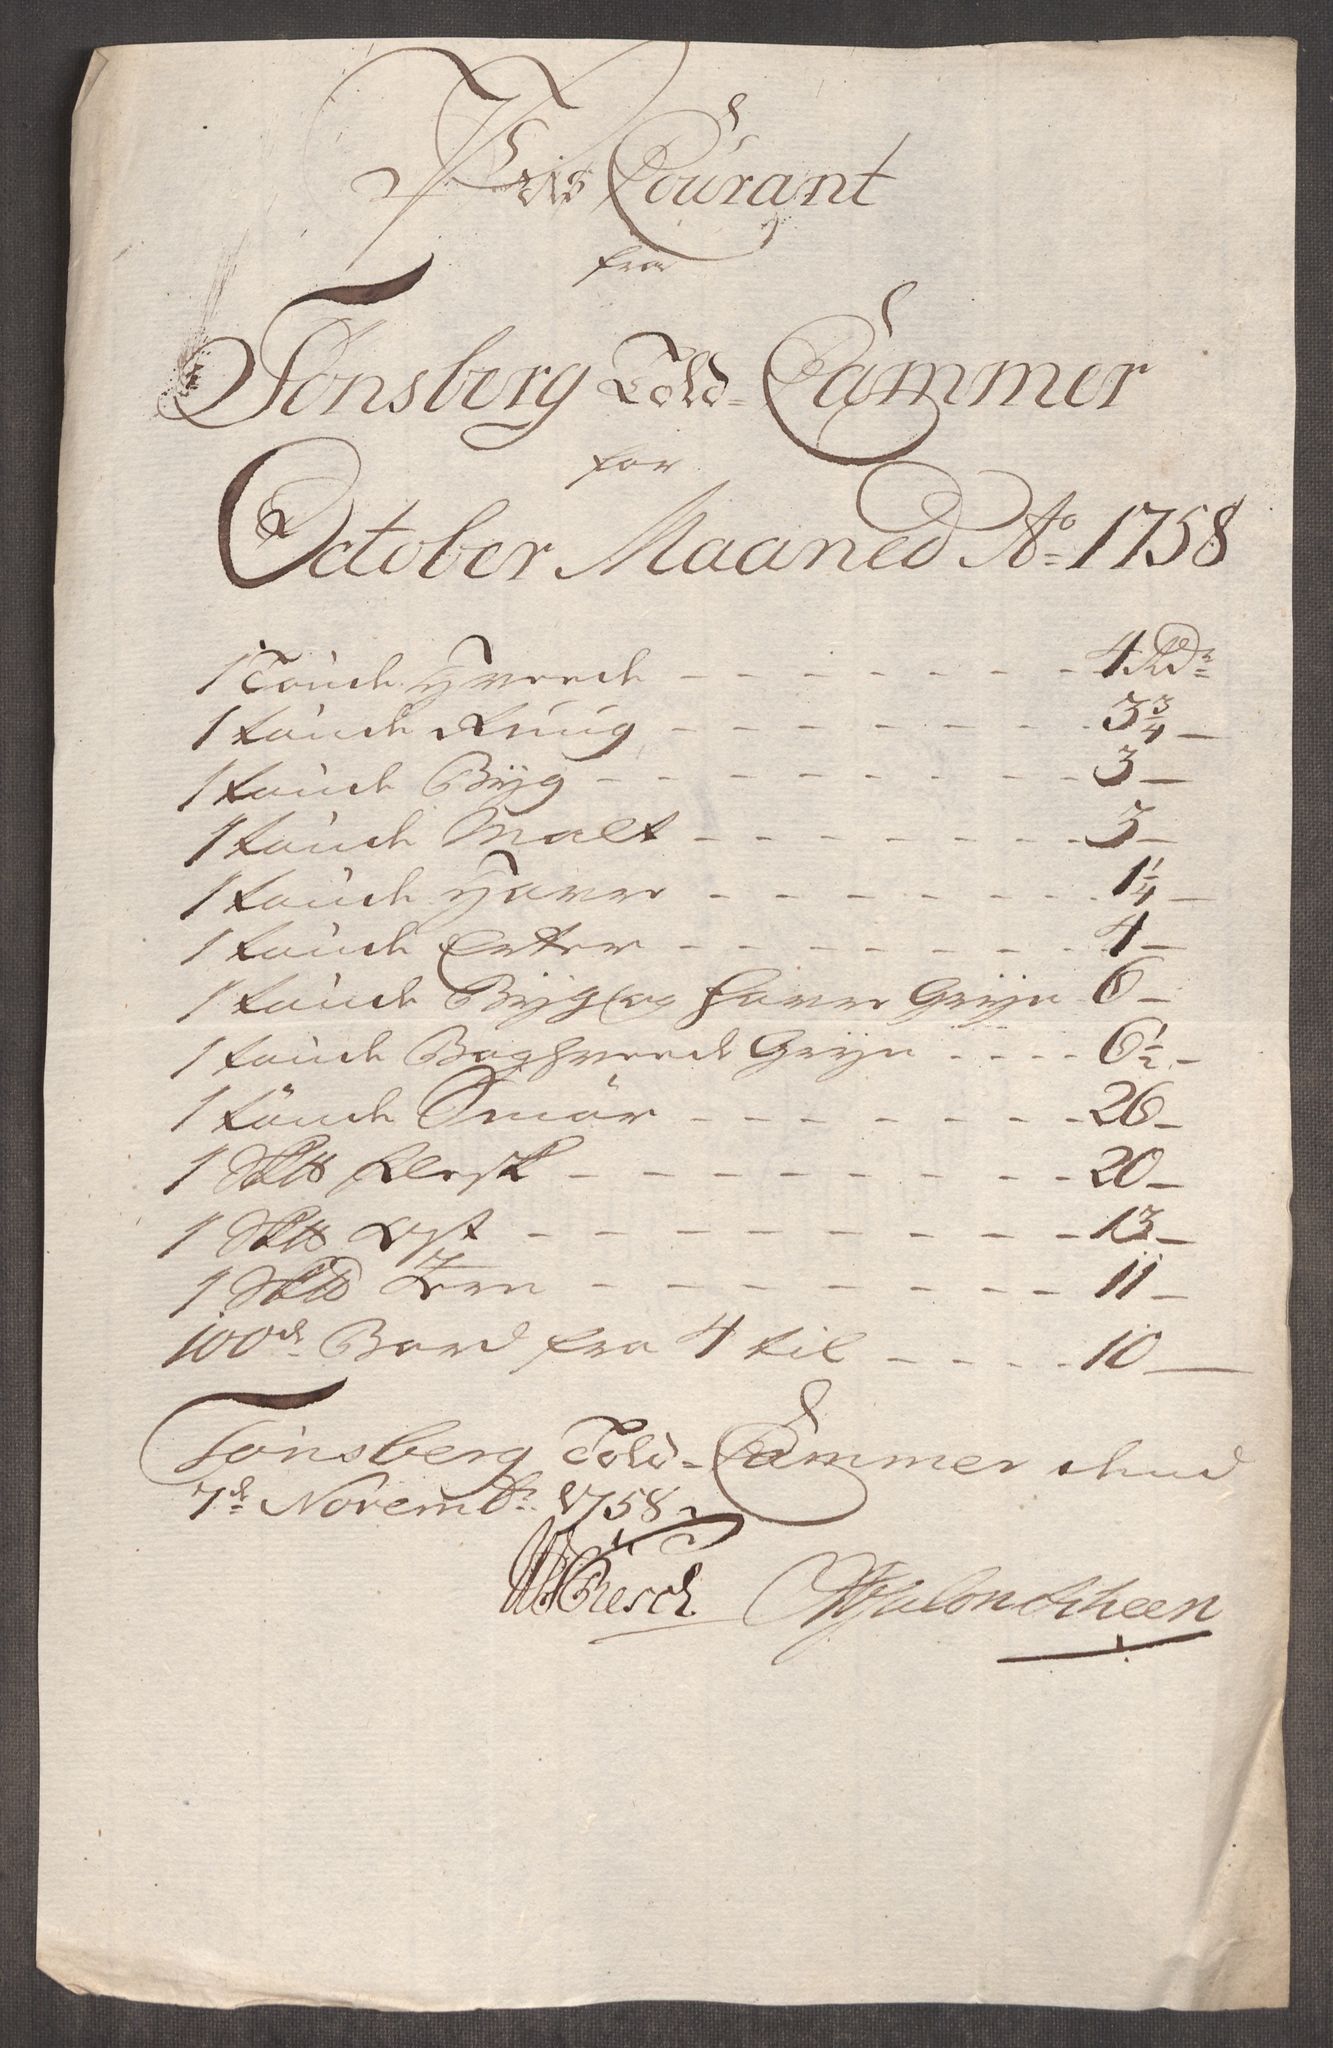 Priis Courant
fra
Tønsberg Told-Cammer
for
October Maaned Ao 1758
1 Tønde Hveede - - - - - - - 4 Rdr
1 tøndeRuug - - - - - - - 3 3/4 -
1 tønde Byg - - - - - - - 3 -
1 tønde Malt - - - - - - - 3 -
1 tønde Havre - - - - - - - 1 1/4 -
1 tønde Erter - - - - - - - 4 -
1 tønde Byg og Havre Gryn 6 -
1 tønde Boghveede Gryn - - - - 6 1/2 -
1 tønde Smør - - - - - - - 26 -
1 Sk℔ Flesk - - - - - - - 20 -
1 Sk℔ Ost - - - - - - - 13 -
1 Sk℔ Jern - - - - - - - 11 -
100de Bord fra 4 til - - - - 10 -
Tønsberg Told-Cammer dend
7de Novembr 1758